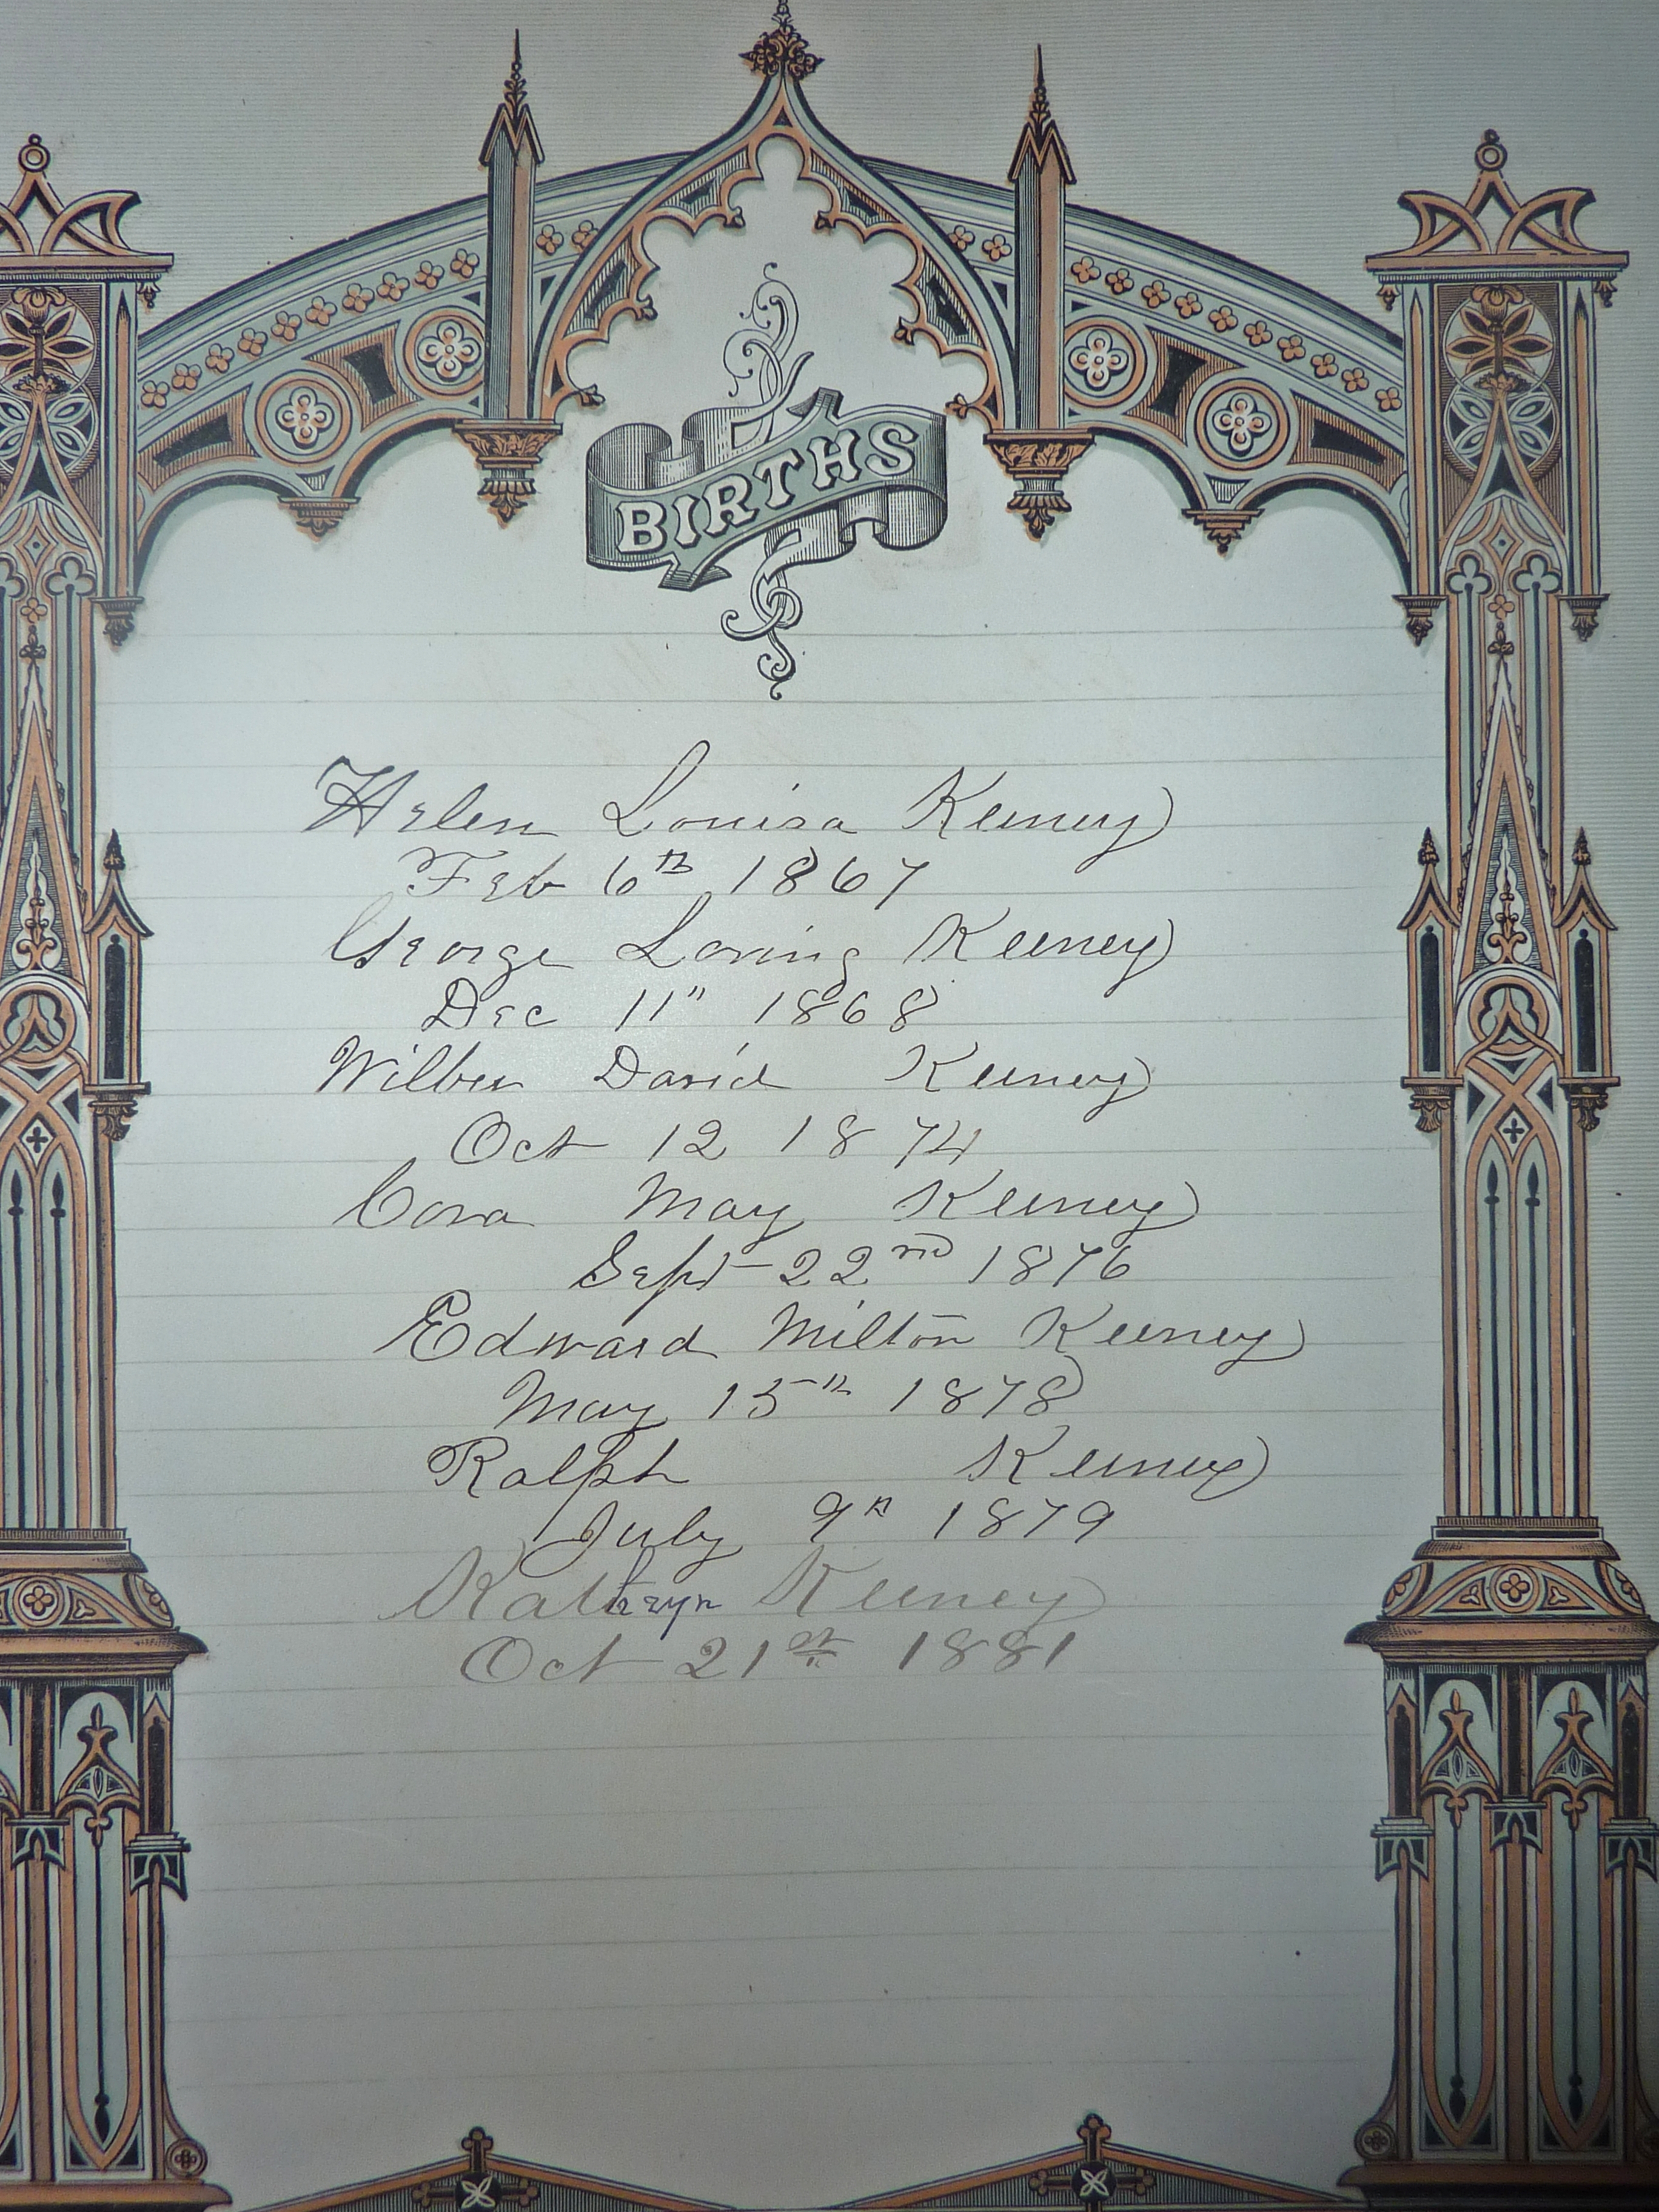 BIRTHS
Helen Louisa Keeney
Feb 6th 1867
George Loring Keeney
Dec 11" 1868
Wilber David Keeney
Oct 12 1874
Cora May Keeney
Sept 22nd 1876
Edward Milton Keeney
May 15th 1878
Ralph Keeney
July 9th 1879
Kathryn Keeney
Oct 21st 1881